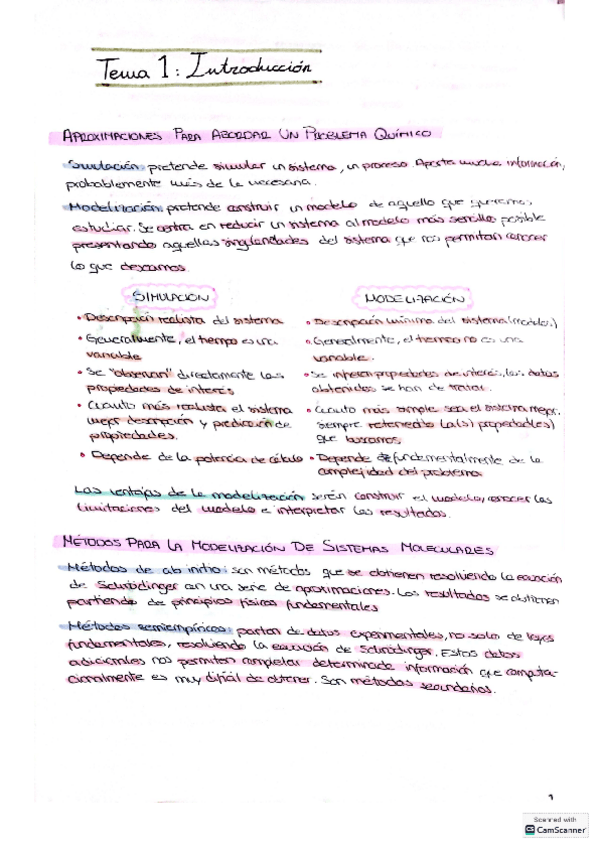 Tema 1: Introducción
APROXIMACIONES PARA ABORDAR UN PROBLEMA QUÍMICO
Simulación: pretende simular un sistema, un proceso. Aporta mucha información,
probablemente más de la necesaria.
Modelización: pretende construir un modelo de aquello que queremos
estudiar. Se centra en reducir un sistema al modelo más sencillo posible
presentando aquellas singularidades del sistema que nos permitan conocer
lo que deseamos.
SIMULACIÓN
• Descripción realista del sistema
• Generalmente, el tiempo es una
variable
• Se "observan" directamente las
propiedades de interés
• Cuanto más realista el sistema
mejor descripción y predicción de
propiedades.
• Depende de la potencia de cálculo
MODELIZACIÓN
• Descripción mínima del sistema (modelo)
• Generalmente, el tiempo no es una
variable.
• Se infieren propiedades de interés, los datos
obtenidos se han de tratar.
• Cuanto más simple sea el sistema mejor,
siempre reteniendo la(s) propiedad(es)
que buscamos
• Depende fundamentalmente de la
complejidad del problema
Las ventajas de la modelización serán construir el modelo, conocer las
limitaciones del modelo e interpretar los resultados.
MÉTODOS PARA LA MODELIZACIÓN DE SISTEMAS MOLECULARES
Métodos de ab initio: son métodos que se obtienen resolviendo la ecuación
de Schrödinger con una serie de aproximaciones. Los resultados se obtienen
partiendo de principios físicos fundamentales
Métodos semiempíricos: parten de datos experimentales, no solo de leyes
fundamentales, resolviendo la ecuación de Schrödinger. Estos datos
adicionales nos permiten completar determinada información que computa-
cionalmente es muy difícil de obtener. Son métodos secundarios.
1
Scanned with
CamScanner